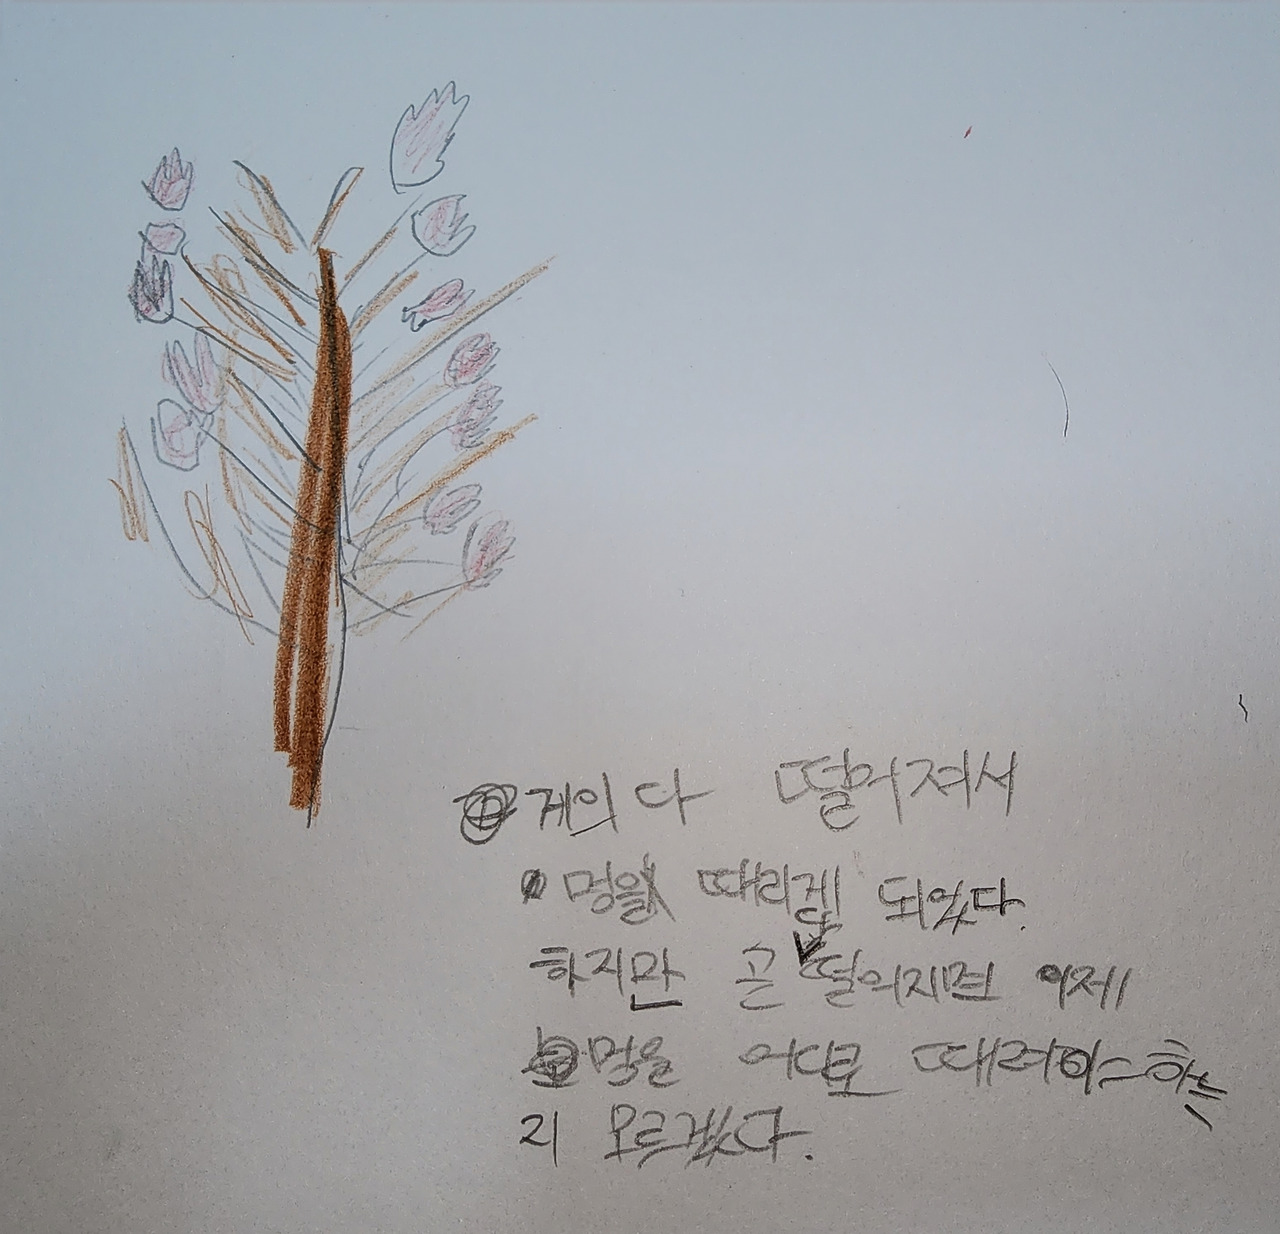 게의 다 떨어져서
멍을 때리게 되었다.
하지만 곧 떨의지면 이제
멍을 어디로 때려야 하는
지 모르겠다.